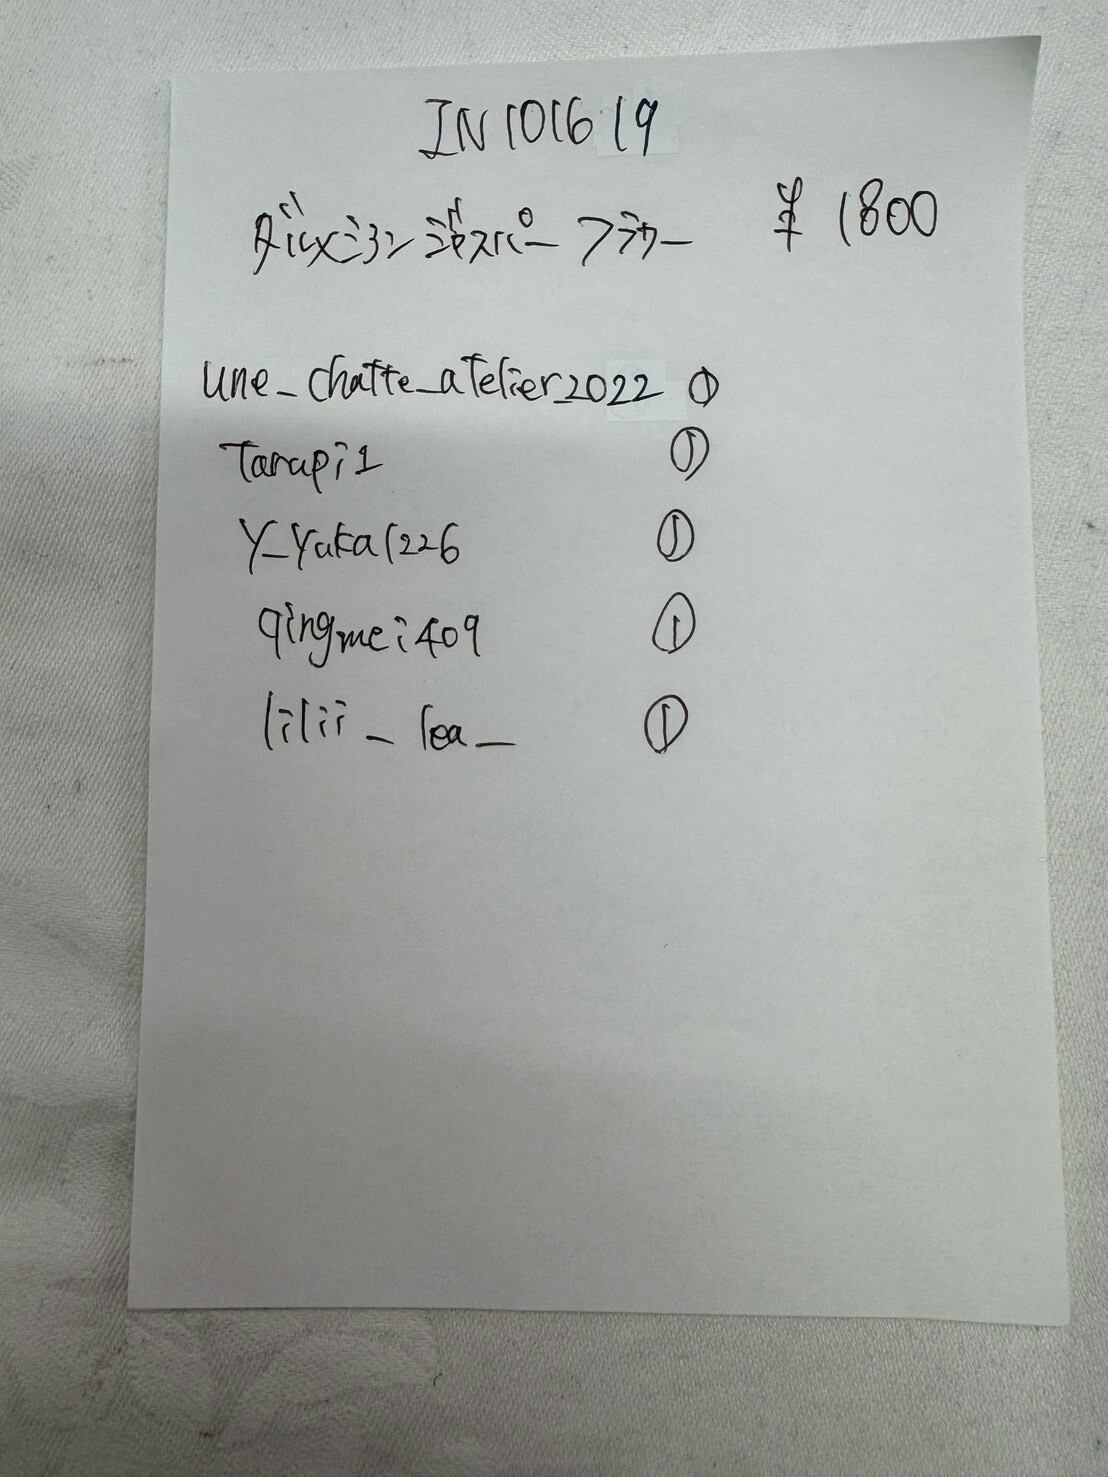 IN101619
ダルメシアン ジャスパー フラワー ¥1800
une_chatte_atelier2022 ①
Tarupi1 ①
Y_Yuka1226 ①
qingmei409 ①
lilii_lea_ ①